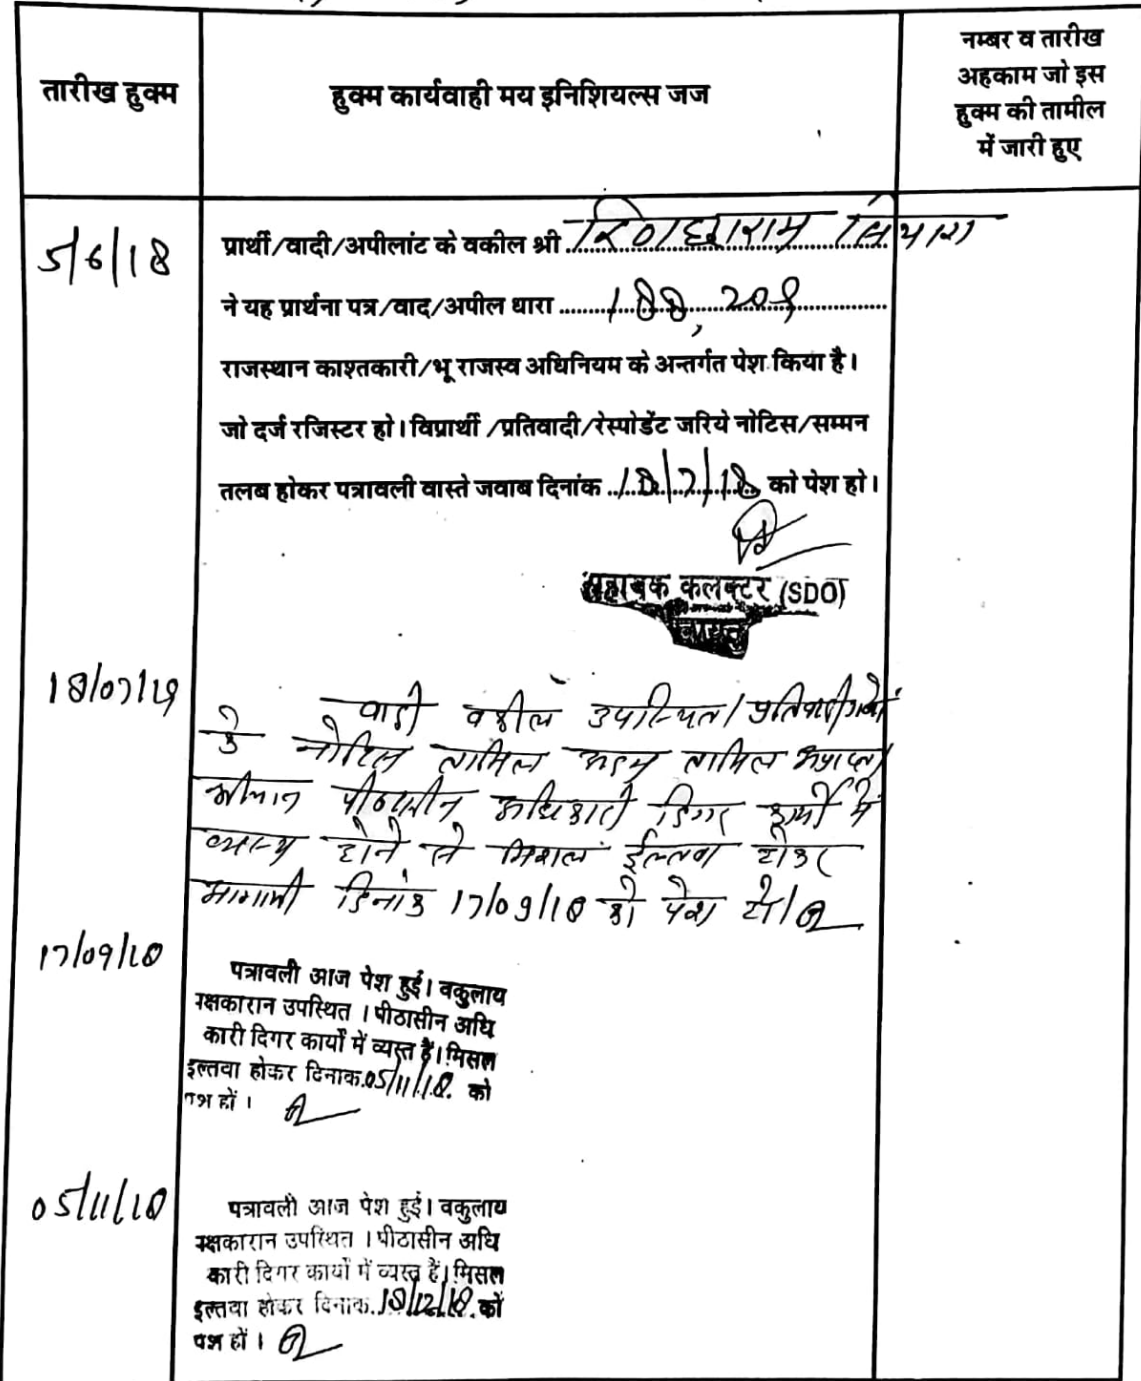 तारीख हुक्म
हुक्म कार्यवाही मय इनिशियल्स जज
नम्बर व तारीख
अहकाम जो इस
हुक्म की तामील
में जारी हुए
5/6/18
प्रार्थी/वादी/अपीलांट के वकील श्री
ने यह प्रार्थना पत्र/वाद/अपील धारा ......188, 209
राजस्थान काश्तकारी/भू राजस्व अधिनियम के अन्तर्गत पेश किया है।
जो दर्ज रजिस्टर हो। विप्रार्थी/प्रतिवादी/रेस्पोडेंट जरिये नोटिस/सम्मन
तलब होकर पत्रावली वास्ते जवाब दिनांक ..18/7/18 को पेश हो।
सहायक कलक्टर (SDO)
बायतु
18/07/18
वादी वकील उपस्थित। प्रतिवादीगणों
के नोटिस तामिल अदम तामिल अप्राप्त।
श्रीमान पीठासीन अधिकारी दिगर कार्यो में
व्यस्थ होने से मिशल ईल्तवा होकर
आगामी दिनांक 17/09/18 को पेश हो।
17/09/18
पत्रावली आज पेश हुई। वकुलाय
पक्षकारान उपस्थित । पीठासीन अधि
कारी दिगर कार्यों में व्यस्त हैं। मिसल
इल्तवा होकर दिनाक.05/11/18. को
पेश हों ।
05/11/18
पत्रावली आज पेश हुई। वकुलाय
पक्षकारान उपस्थित । पीठासीन अधि
कारी दिगर कार्यों में व्यस्त हैं। मिसल
इल्तवा होकर दिनाक.18/12/18.को
पेश हों ।